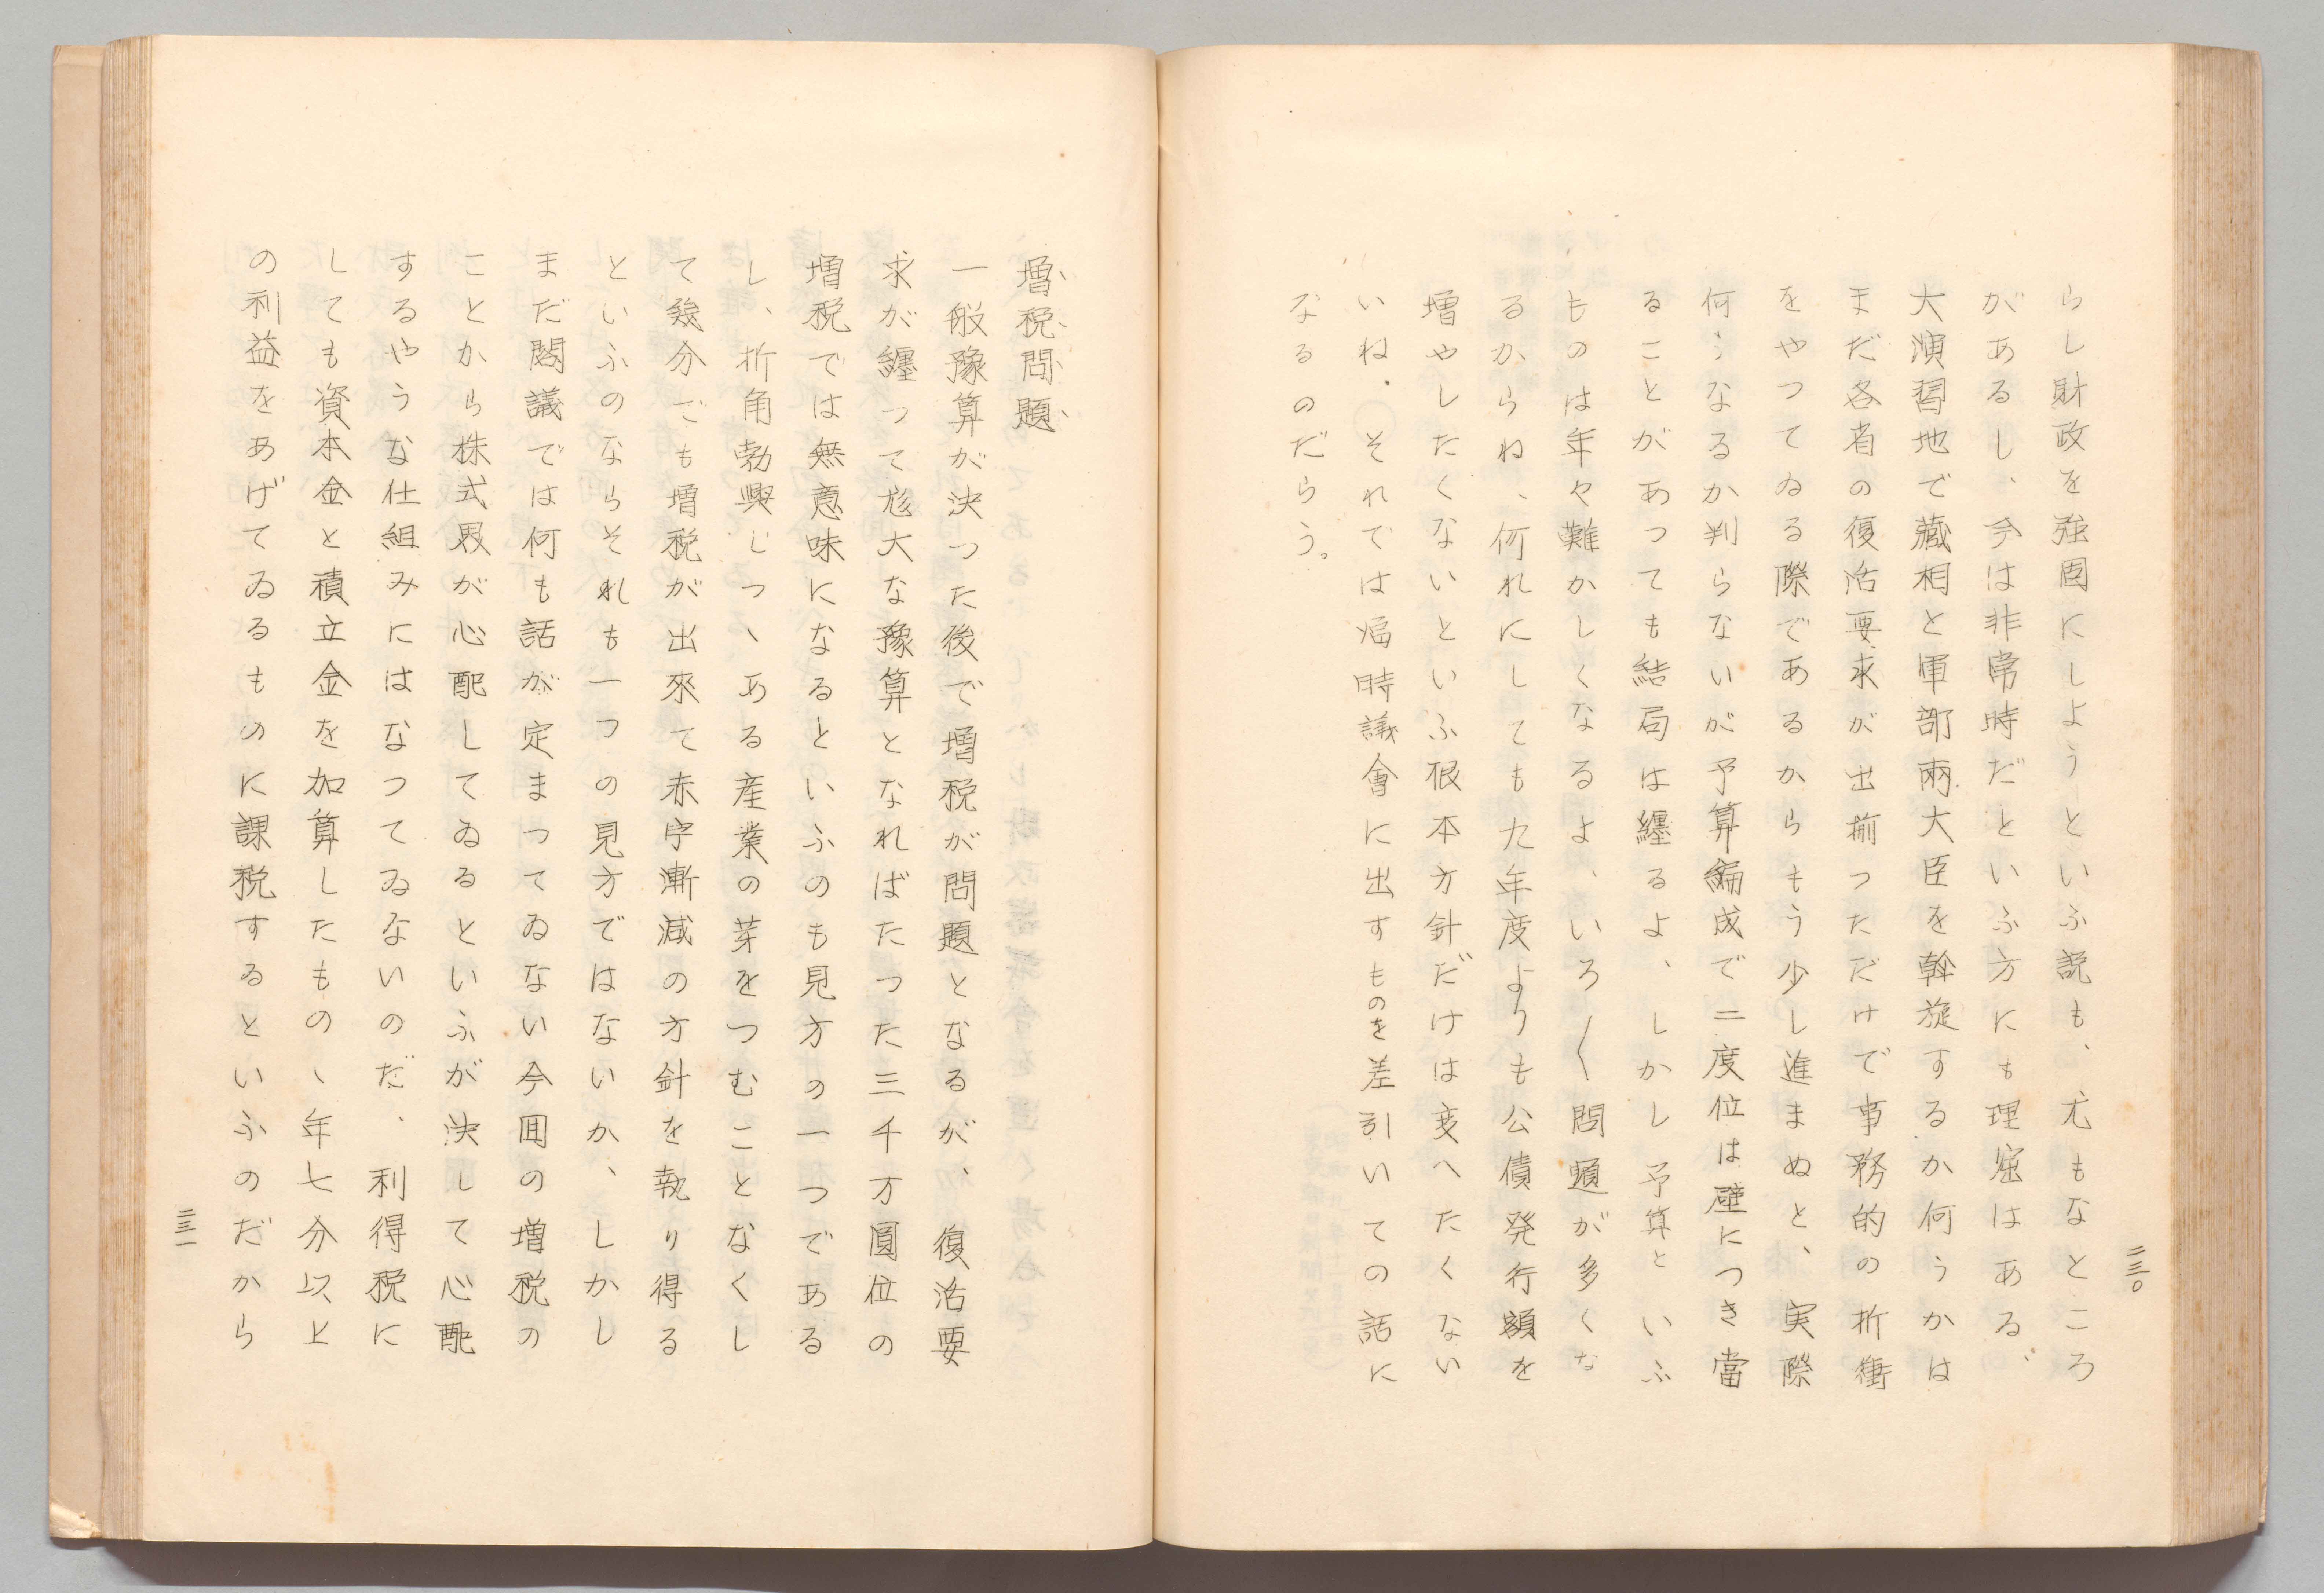 二三〇
らし財政を強固にしようといふ説も、尤もなところ
があるし、今は非常時だといふ方にも理窟はある゛
大演習地で藏相と軍部兩大臣を斡旋するか何うかは
まだ各省の復活要求が出揃つただけで事務的の折衝
をやつてゐる際であるからもう少し進まぬと、実際
何うなるか判らないが予算編成で二度位は壁につき當
ることがあつても結局は纒るよ、しかし予算といふ
ものは年々難かしくなるよ、いろ〱問題が多くな
るからね、何れにしても九年度よりも公債発行額を
増やしたくないといふ根本方針だけは変へたくない
いね。それでは臨時議會に出すものを差引いての話に
なるのだらう。
増税問題
一般豫算が決つた後で増税が問題となるが、復活要
求が纒って尨大な豫算となればたつた三千万圓位の
増税では無意味になるといふのも見方の一つである
し、折角勃興しつヽある産業の芽をつむことなくし
て幾分でも増税が出來て赤字漸減の方針を執り得る
といふのならそれも一つの見方ではないか、しかし
まだ閣議では何も話が定まつてゐない今囬の増税の
ことから株式界が心配してゐるといふが決して心配
するやうな仕組みにはなつてゐないのだ、利得税に
しても資本金と積立金を加算したものヽ年七分以上
の利益をあげてゐるものに課税するといふのだから
二三一